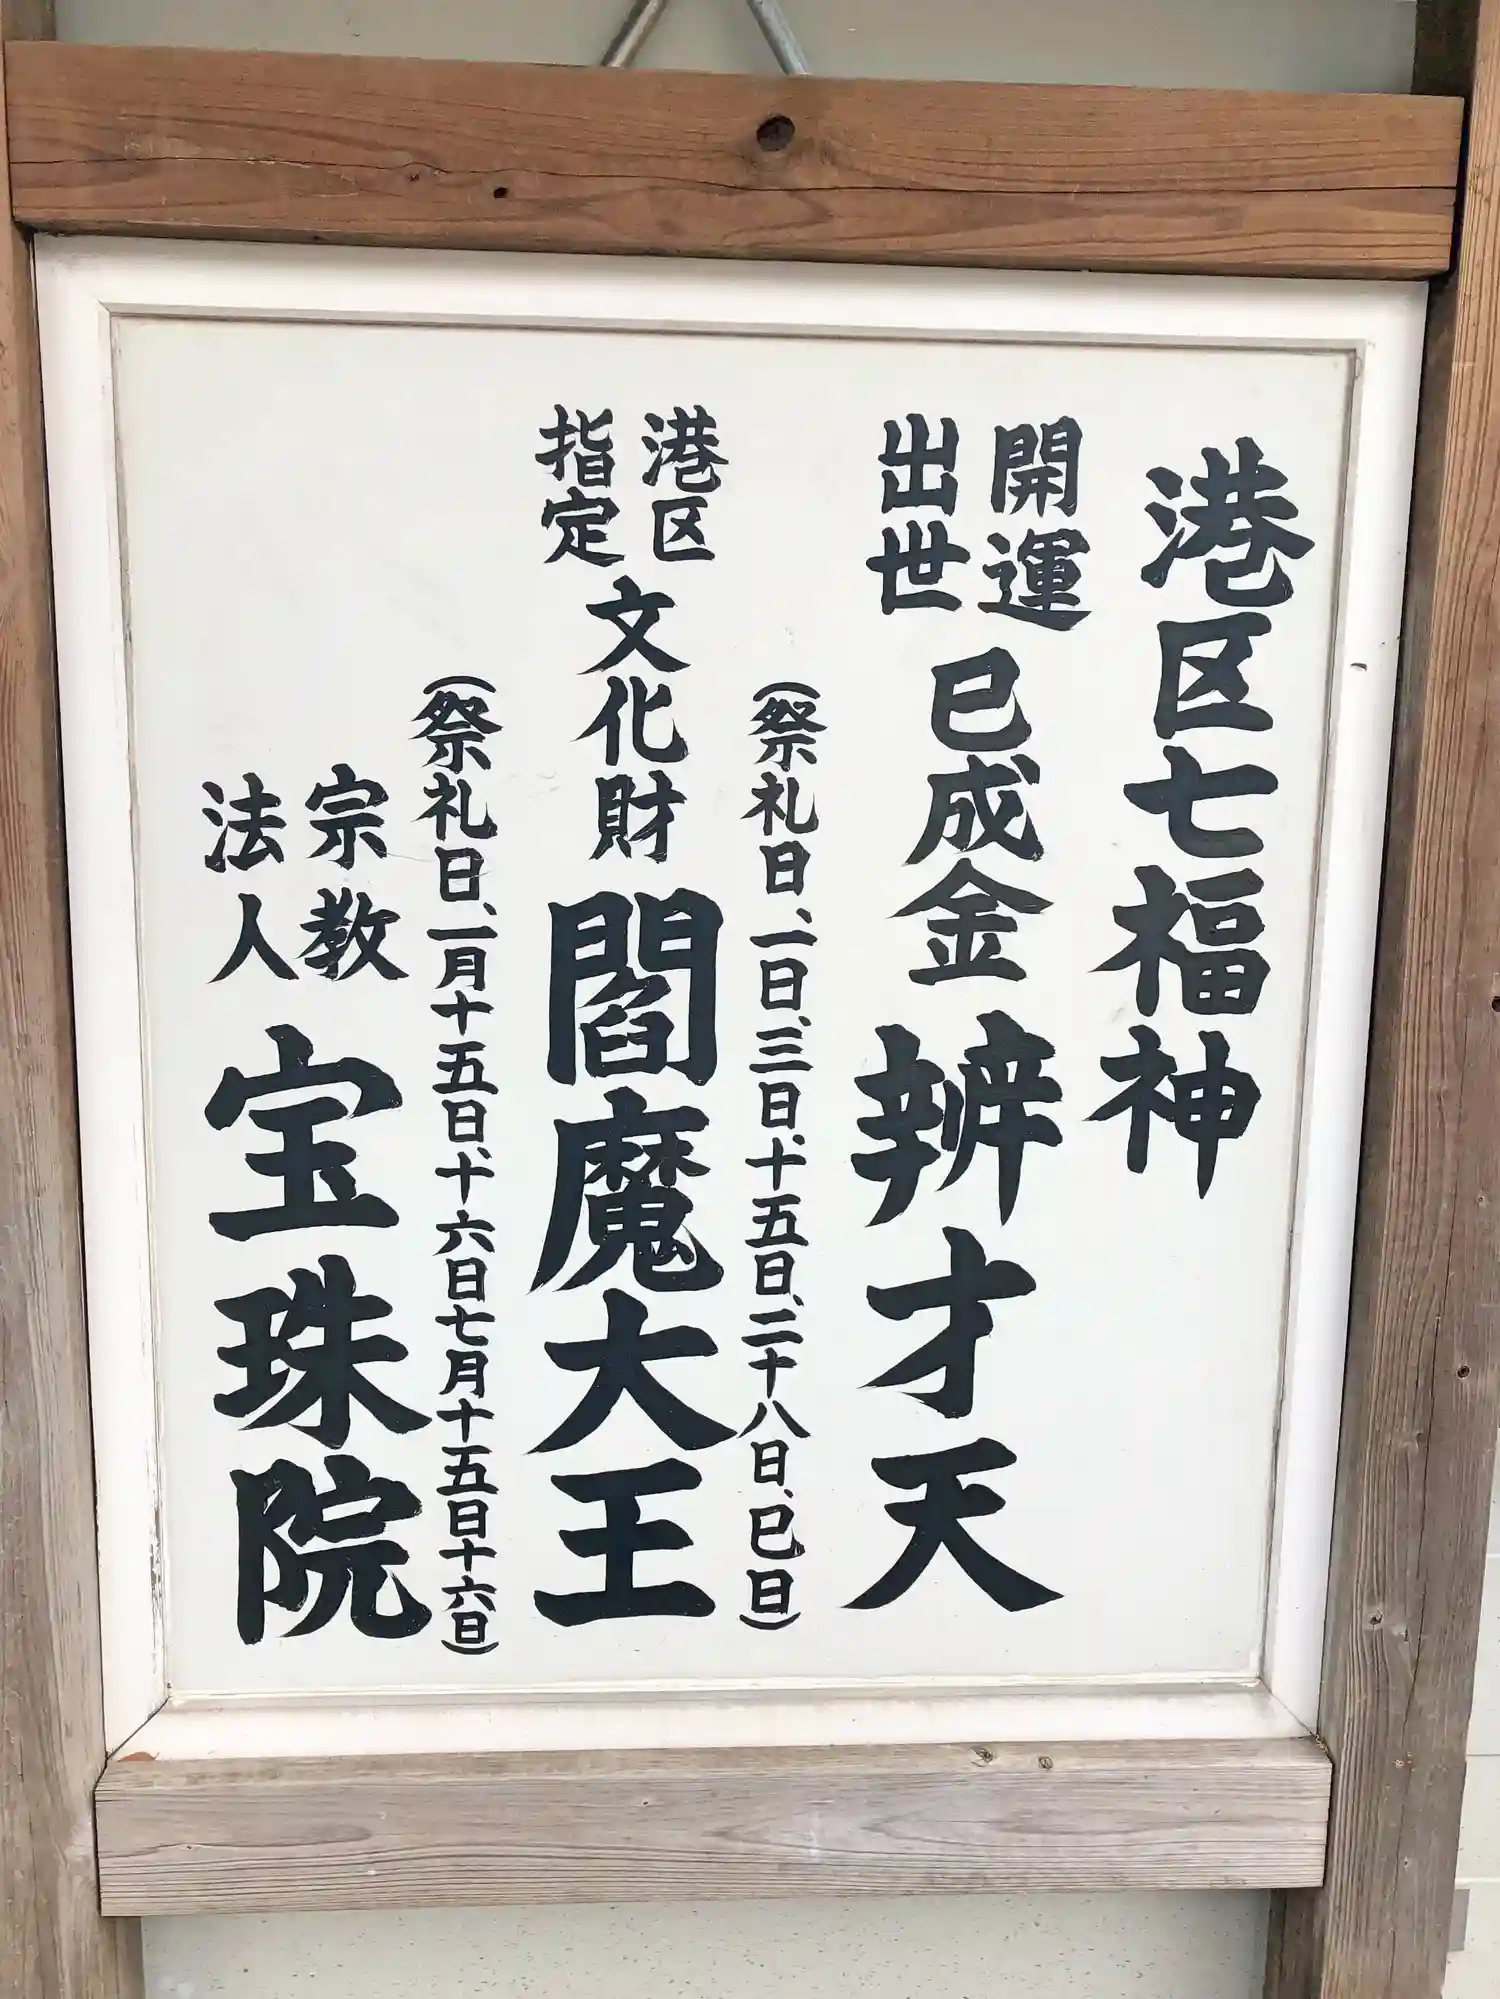 港区七福神
開運出世 巳成金 辨才天
(祭礼日、一日、三日、十五日、二十八日、巳日)
港区指定 文化財 閻魔大王
(祭礼日、一月十五日、十六日七月十五日十六日)
宗教法人 宝珠院